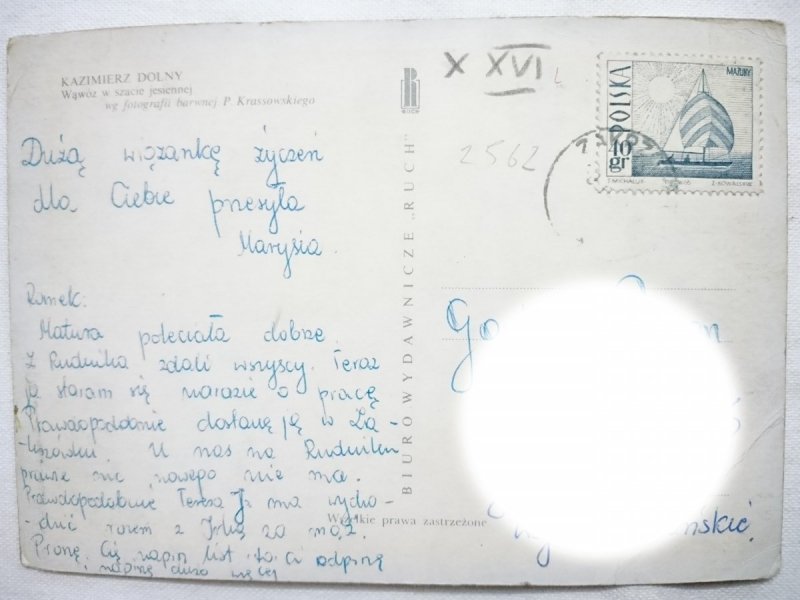 KAZIMIERZ DOLNY
Wąwóz w szacie jesiennej
wg fotografii barwnej P. Krassowskiego
Dużą wiązankę życzeń
dla Ciebie przesyła
Marysia.
Romek:
Matura poleciała dobrze.
Z Rudnika zdali wszyscy. Teraz
ja staram się narazie o pracę
Prawdopodobnie dostanę ją w Za-
U nas na Rudniku
prawie nic nowego nie ma.
Prawdopodobnie Teresa J. ma wycho-
dzić razem z za mąż.
Proszę Cię napisz list to Ci odpiszę
i napiszę dużo więcej
BIURO WYDAWNICZE „RUCH"
Wszelkie prawa zastrzeżone
RUCH
X XVI L
2562
POLSKA
MAZURY
40 gr
T. MICHALUK
Z. KOWALSKI